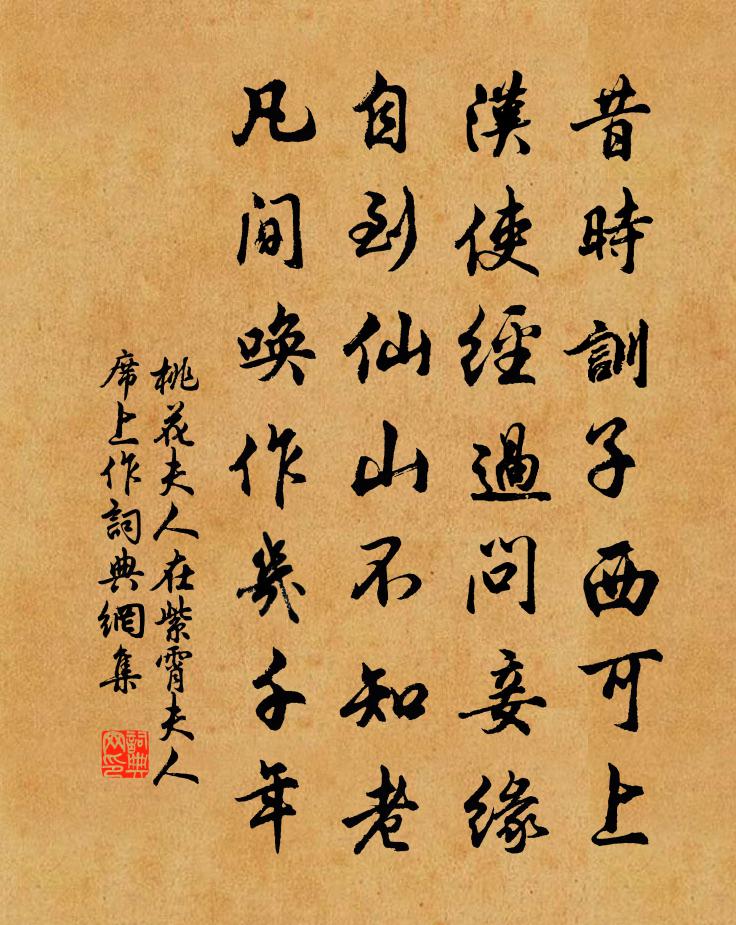 昔時訓子西可上
漢使經過問妾緣
自到仙山不知老
凡間喚作幾千年
桃花夫人在紫霄夫人
席上作詞典網集
詞典網印